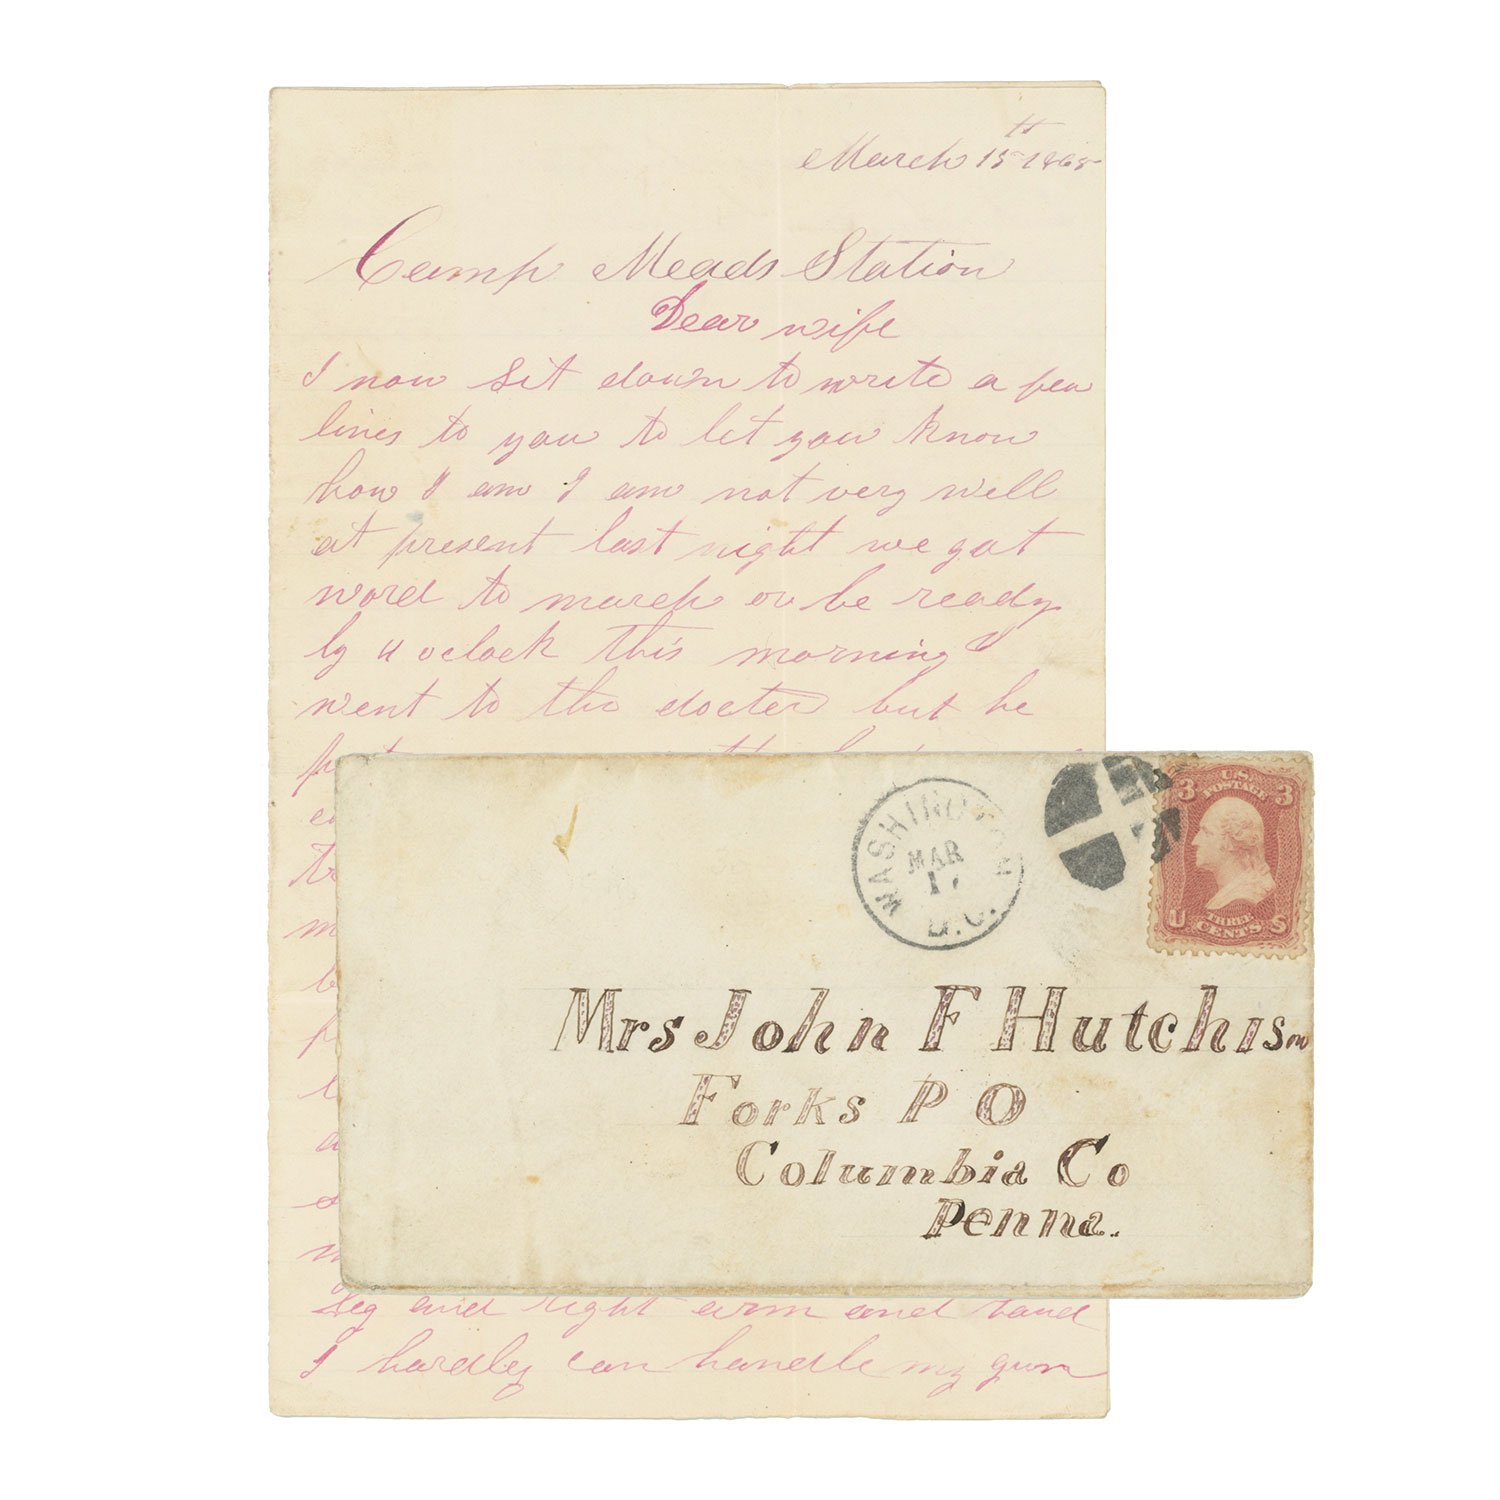 March 15th 1865
Camp Meads Station
Dear wife
I now sit down to write a few
lines to you to let you know
how I am I am not very well
at present last night we got
word to march or be ready
by 4 oclock this morning I
went to the docter but he
WASHINGTON
MAR
17
D.C.
U.S.
POSTAGE
3 3
U THREE S
CENTS
Mrs John F Hutchison
Forks P O
Columbia Co
Penna.
leg and right arm and hand
I hardley can handle my gun